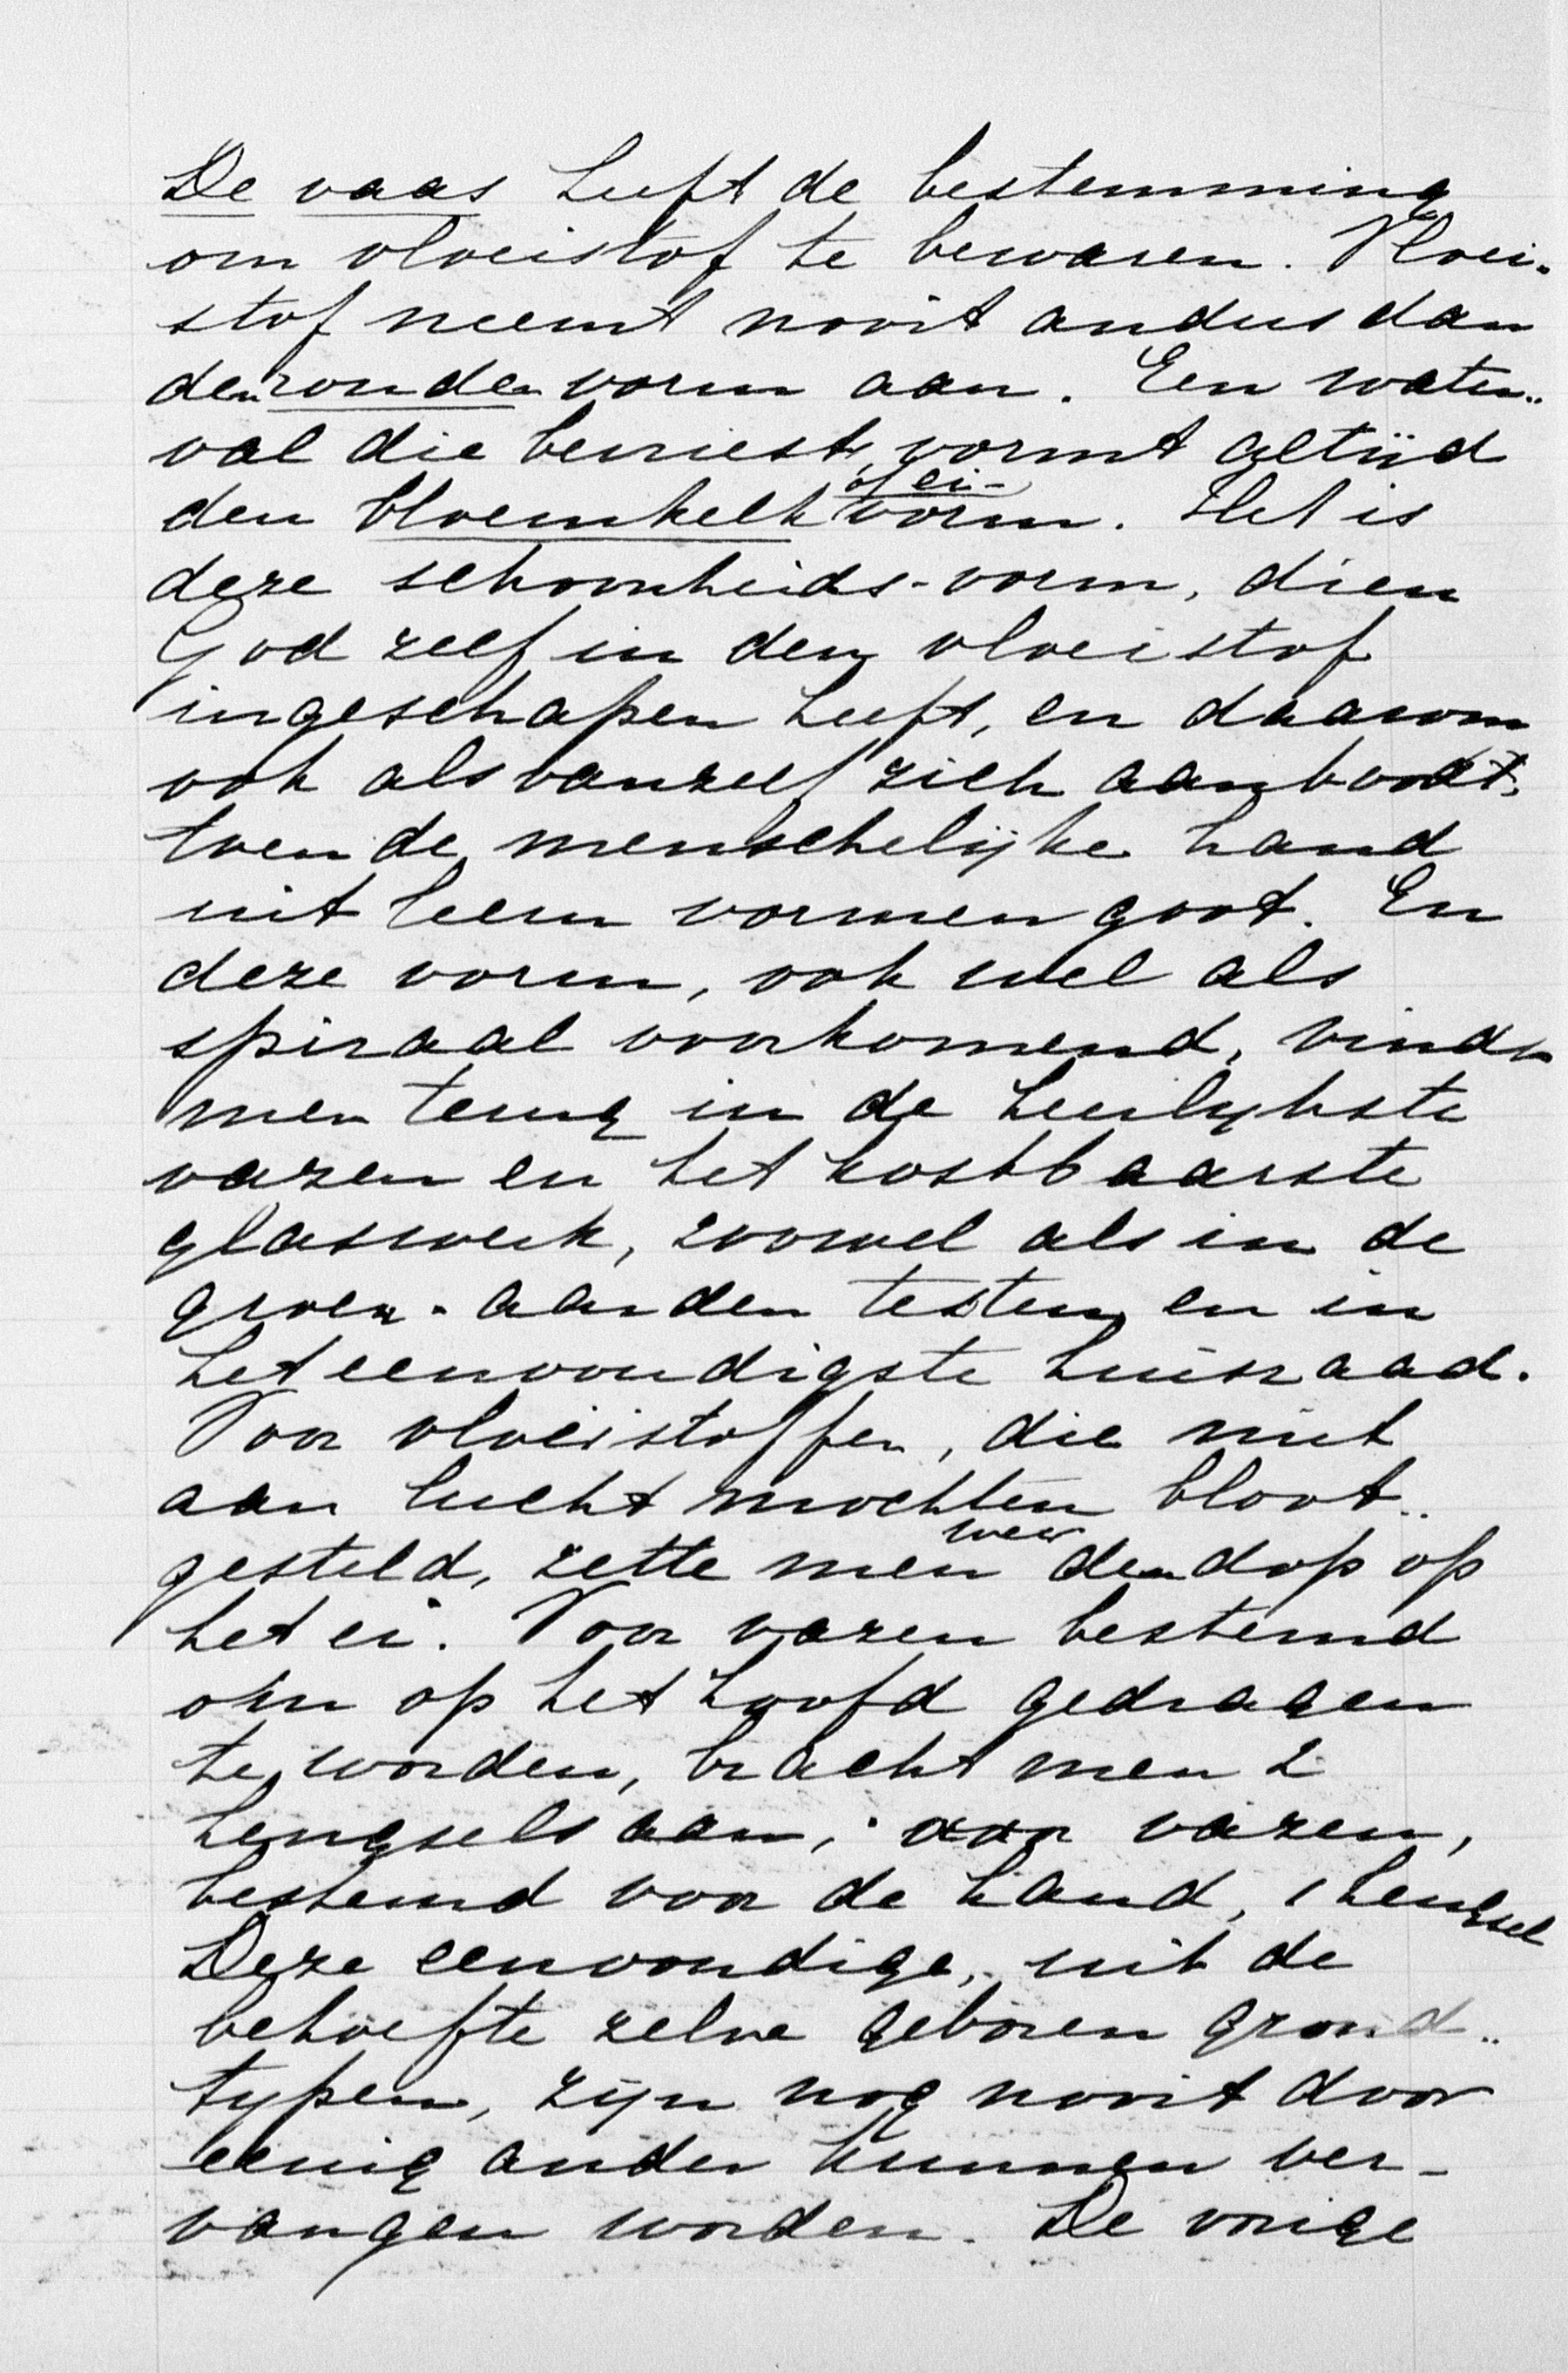 De vaas heeft de bestemming
om vloeistof te bewaren. Vloei-
stof neemt nooit anders dan
den ronden vorm aan. Een water-
val die bevriest, vormt altijd
den bloemkelk of ei-vorm. Het is
deze schoonheids-vorm, dien
God zelf in den vloeistof
ingeschapen heeft, en daarom
ook als vanzelf zich aanbood,
toen de menschelijke hand
uit leem vormen goot. En
deze vorm, ook wel als
spiraal voorkomend, vindt
men terug in de heerlijkste
vazen en het kostbaarste
glaswerk, zoowel als in de
groen-aarden testen, en in
het eenvoudigste huisraad.
Voor vloeistoffen, die niet
aan lucht mochten bloot-
gesteld, zette men weer den dop op
het ei. Voor vazen bestemd
om op het hoofd gedragen
te worden, bracht men 2
hengsels aan; voor vazen,
bestemd voor de hand, 1 hengsel
Deze eenvoudige, uit de
behoefte zelve geboren grond-
typen, zijn nog nooit door
eenig ander kunnen ver-
vangen worden. De vorige